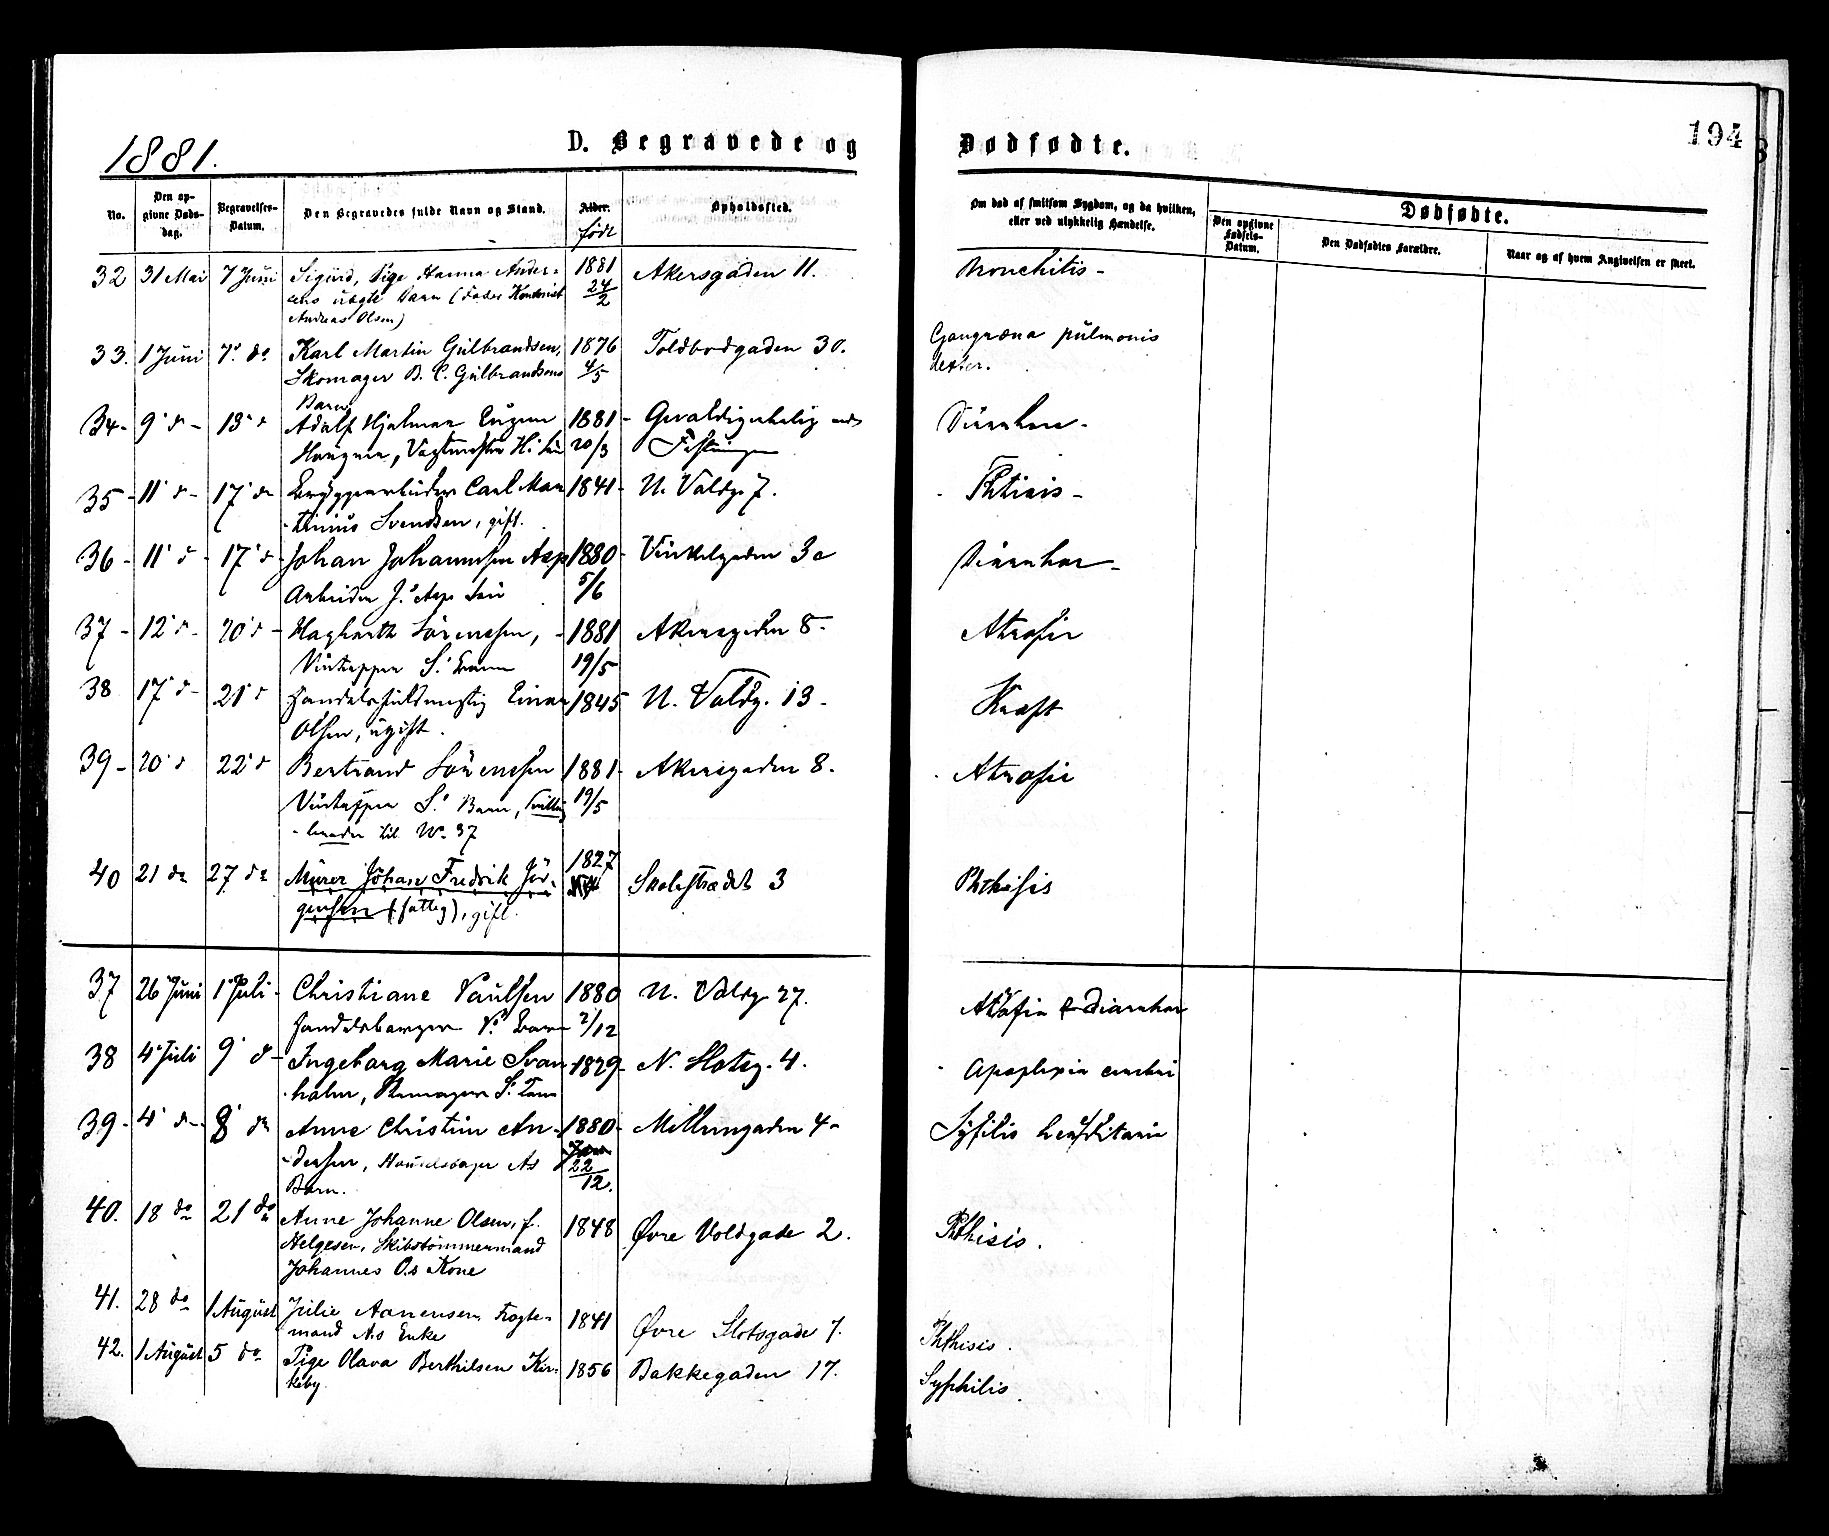 1881.
D. Begravede og
Dødfødte.
194
No.
Den op-
givne Døds-
dag.
Begravelses-
Datum.
Den Begravedes fulde Navn og Stand.
Alder.
født
Opholdssted.
Om død af smitsom Sygdom, og da hvilken,
eller ved ulykkelig Hændelse.
Dødfødte.
Den opgivne
Fødsels-
Datum.
Den Dødfødtes Forældre.
Naar og af hvem Angivelsen er skeet.
32 31 Mai 7 Juni Sigurd, Pige Hanna Ander- 1881 Akersgaden 11. Bronchitis -
sens uægte Barn (Fader Kontorist 24/2
Andreas Olsen)
33. 1 Juni 7' do Karl Martin Gulbrandsen, 1876 Toldbodgaden 30. Gangræna pulmonis
Skomager B. C. Gulbrandsens 4/5 dexter.
Barn
34 - 9' d - 13' d Adolf Hjalmar Eugen 1881 - Gevaldigerbolig ved Diarrhoe -
Haugner, Vagtmester H.' Søn 20/3 Fæstningen
35 - 11' d - 17' do Bryggearbeider Carl Mar 1841 - N. Voldg. 7. Phtisis -
- thinius Svendsen, gift.
36 - 11' d - 17' d - Johan Johannesen Asp 1880 - Vinkelgaden 3a Diarrhoe -
Arbeider J.' Asps Søn 5/6
37 - 12' d - 20' d - Hagbarth Sörenssen, - 1881 Akersgaden 8 - Atrofie
Vintapper S.' Barn 19/5
38 17' d - 21' d Handelsfuldmægtig Einar 1845 N. Voldg. 13 - Kræft
Olsen, ugift.
39 - 20' d 22' d Bertrand Sörenssen 1881 - Akersgaden 8. Atrofie
Vintapper S.' Barn, Tvilling 19/5
- broder til No. 37
40 21 do 27 do Murer Johan Fredrik Jör- 1827 Skolestrædet 3 Phthisis
gensen (fattig), gift.
37 26' Juni 1' Juli - Christiane Paulsen 1880 N. Voldg. 27. Atrofia & Diarrhoe
Handelsborger P.' Barn 2/12
38 4' Juli 9' d - Ingeborg Marie Svan 1829 - N. Slotsg. 4. Apoplexia cerebri
- holm,
39 - 4' d - 8' do Anne Christine An- 1880 - Møllergaden 4 - Syfilis hereditaria
- dersen, Handelsborger As 22/12.
Barn.
40. 18 do 21 do Anne Johanne Olsen, f. 1848 Øvre Voldgade 2. Phthisis.
Helgesen, Skibstömmermand
Johannes O.s Kone
41. 28 do 1 August Julie Aanensen, Fragte- 1841 Øvre Slotsgade 7. Phthisis.
mand A.s Enke
42. 1 August 5 do Pige Olava Berthilsen Kir- 1856 Bakkegaden 17. Syphilis.
keby.